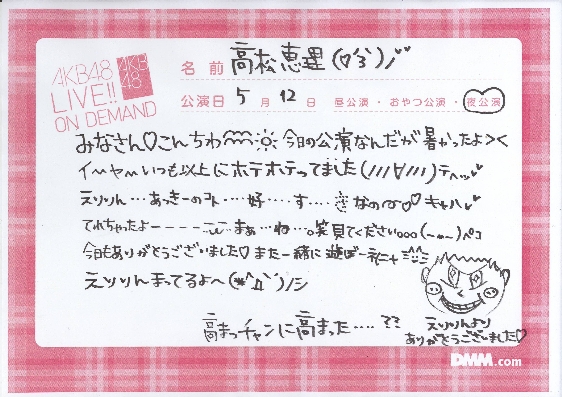 AKB48
LIVE!!
ON DEMAND
AKB
48
名前 高松恵理(ロ彡)ノ"
公演日 5月12日 昼公演・おやつ公演・夜公演
みなさん♡こんちわ 今日の公演なんだが暑かったよ><
イヤいつも以上にホテホテってました(///∀///)テヘッ
えりりん…あっきーのコト…好…す…きなの♡♡キャハ
てれちゃったよーーーー まぁ…ね…。笑見てください。。。(～-～)ペコ
今日もありがとうございました♡また一緒に遊ぼーネニャ
えりりんまってるよ～(*^Д^)ノシ
高まっチャンに高まった....??
えりりんより
ありがとうございました♡
DMM.com